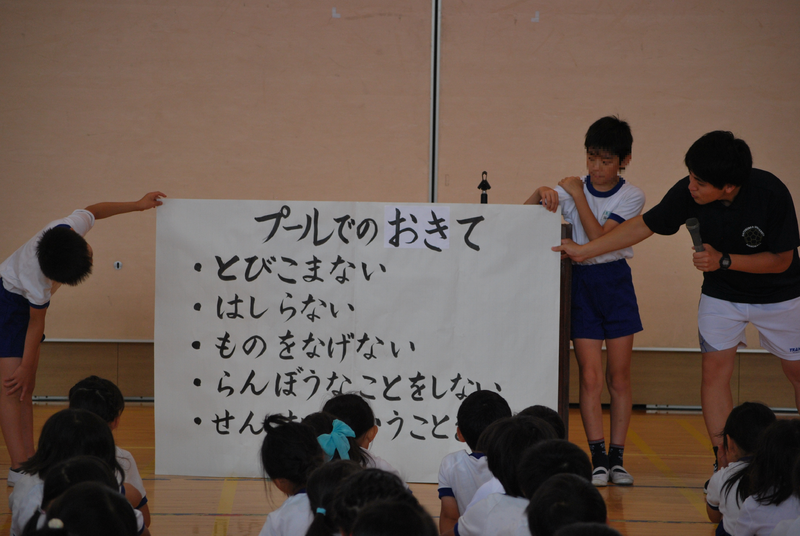 プールでのおきて
・とびこまない
・はしらない
・ものをなげない
・らんぼうなことをしない
・せん
うこと